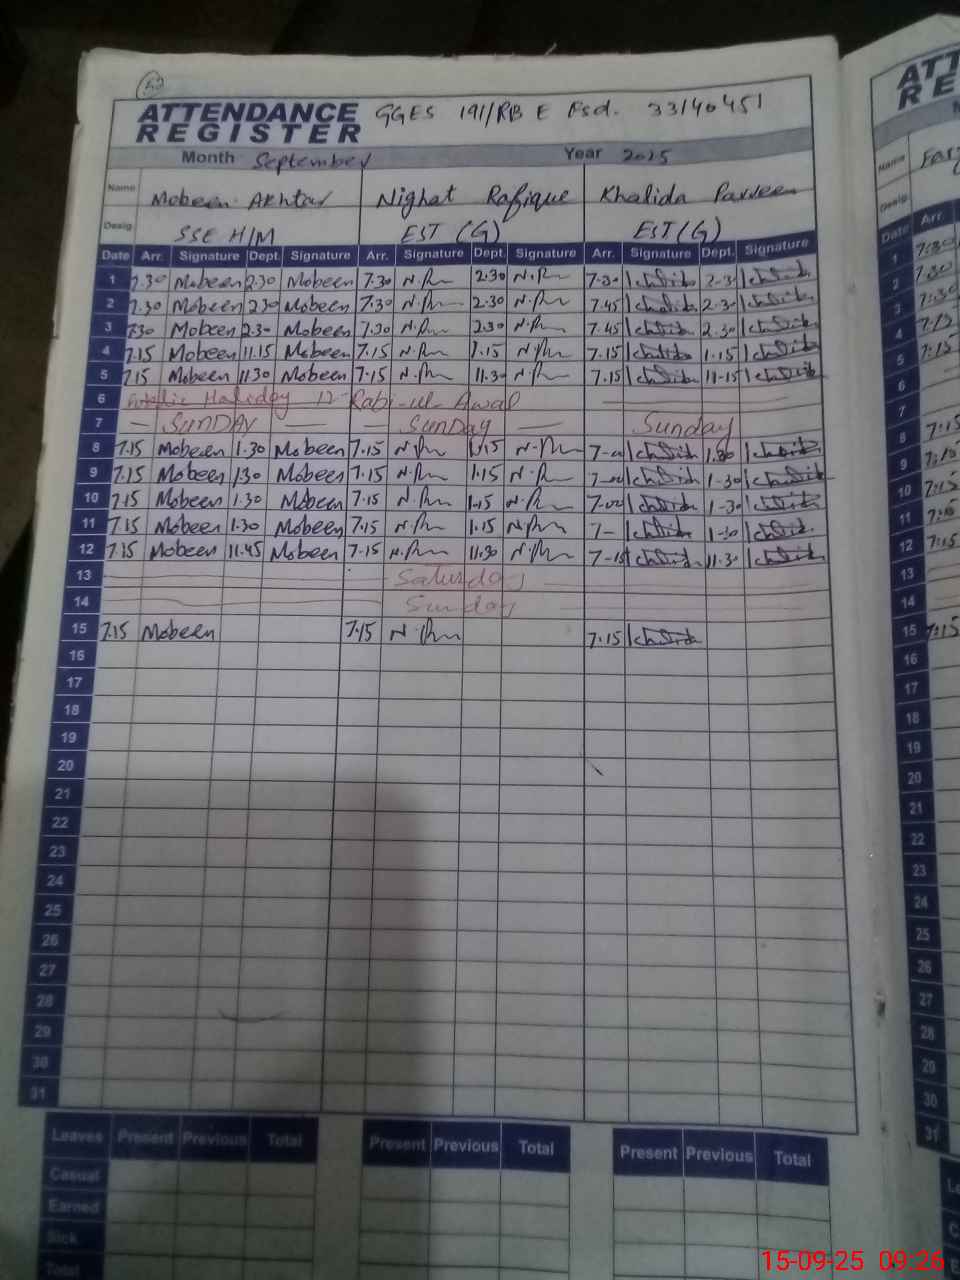 52
ATTENDANCE REGISTER GGES 191/RB E Fsd. 33140451
Month September Year 2025
Name Mobeen Akhtar Nighat Rafique Khalida Parveen
Desig SSE H/M EST (G) EST (G)
Date Arr. Signature Dept. Signature Arr. Signature Dept. Signature Arr. Signature Dept. Signature
1 7.30 Mobeen 2.30 Mobeen 7.30 2.30 7-30 2-3
2 7.30 Mobeen 2.30 Mobeen 7.30 2.30 7.45 2-3
3 7.30 Mobeen 2.30 Mobeen 7.30 2.30 7.45 2-30
4 7.15 Mobeen 11.15 Mobeen 7.15 1.15 7-15 1-15
5 7.15 Mobeen 11.30 Mobeen 7.15 11.30 7.15 11-15
6 Public Holiday 12-Rabi-ul-Awal
7 — SUNDAY — — SUNDAY — Sunday
8 7.15 Mobeen 1.30 Mobeen 7.15 1.15 1.30
9 7.15 Mobeen 1.30 Mobeen 7.15 1.15 7-00 1-30
10 7.15 Mobeen 1.30 Mobeen 7.15 1.15 7-00 1-30
11 7.15 Mobeen 1.30 Mobeen 7.15 1.15 7- 1-30
12 7.15 Mobeen 11.45 Mobeen 7-15 11.30 7-15 11-30
13 Saturday
14 Sunday
15 7.15 Mobeen 7.15 7.15
16
17
18
19
20
21
22
23
24
25
26
27
28
29
30
31
Leaves Present Previous Total Present Previous Total Present Previous Total
Casual
Earned
Sick
Total
ATT
RE
Name
Desig
Date Arr
1 7:30
2 7:30
3 7:30
4 7:15
5 7:15
6
7
8 7:15
9 7:15
10 7:15
11 7:15
12 7:15
13
14
15 7:15
16
17
18
19
20
21
22
23
24
25
26
27
28
29
30
31
15-09-25 09:26